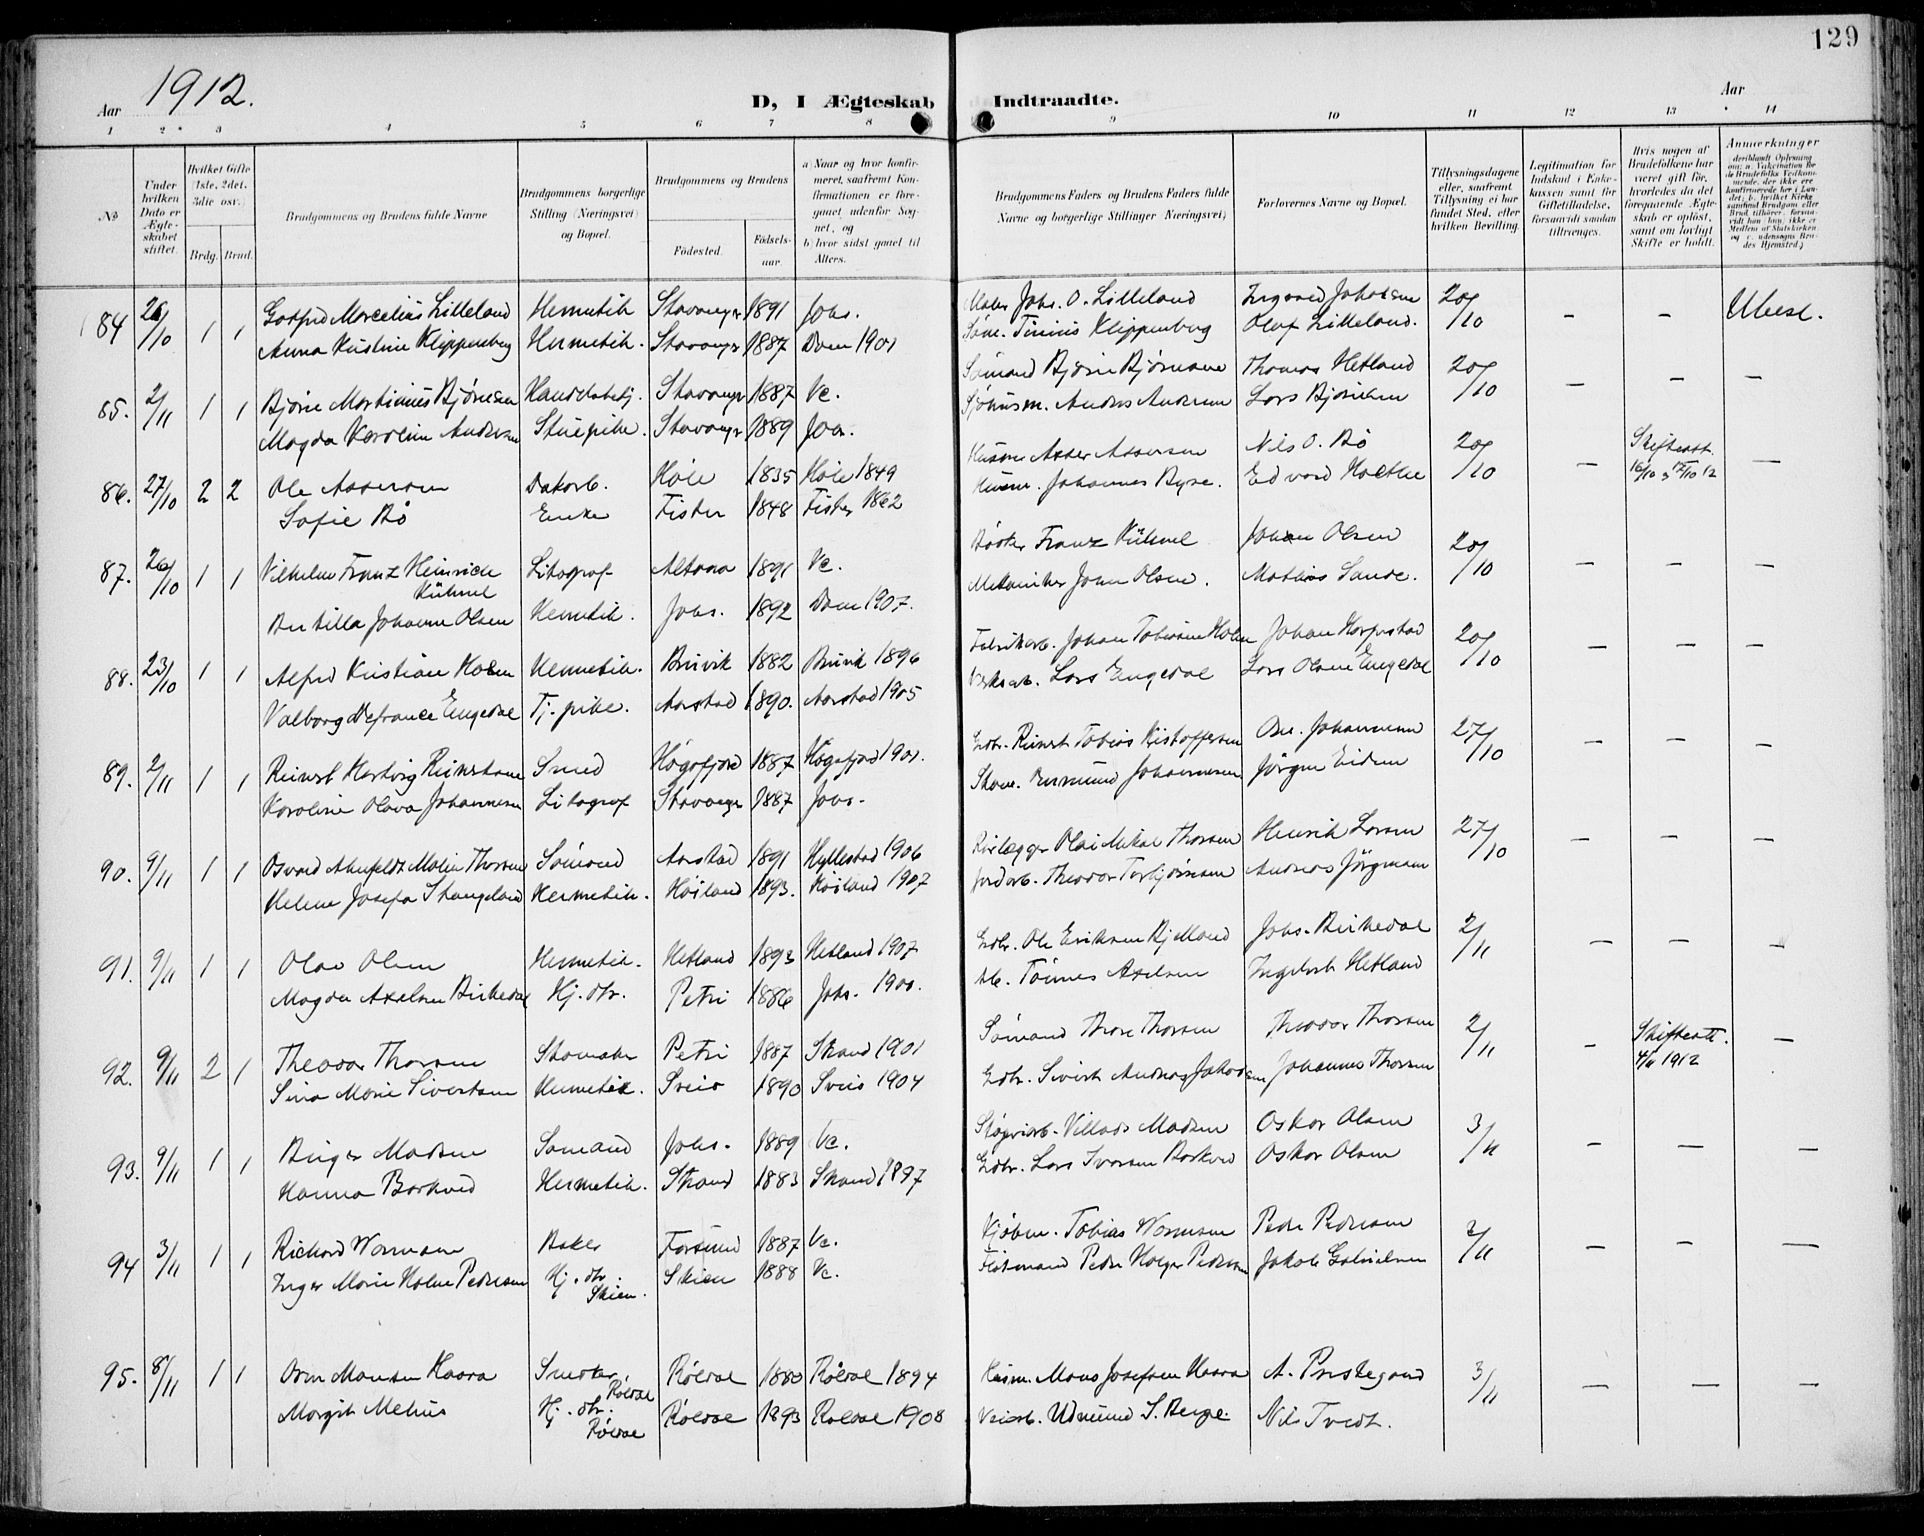 129
Aar 1912.
D, I Ægteskab Indtraadte.
Aar
1 2 3 4 5 6 7 8 9 10 11 12 13 14
No
Under hvilken Dato er Ægteskabet stiftet.
Hvilket Gifte (1ste, 2det, 3die osv.)
Brdg. Brud.
Brudgommens og Brudens fulde Navne
Brudgommens borgerlige Stilling (Næringsvei) og Bopæl.
Brudgommens og Brudens
Födested. Födselsaar.
a) Naar og hvor konfirmeret, saafremt Konfirmationen er foregaaet udenfor Sognet, og
b) hvor sidst gaaet til Alters.
Brudgommens Faders og Brudens Faders fulde Navne og borgerlige Stillinger (Næringsvei)
Forlovernes Navne og Bopæl.
Tillysningsdagene eller, saafremt Tillysning ei har fundet Sted, efter hvilken Bevilling.
Legitimation for Indskud i Enkekassen samt for Giftetilladelse, forsaavidt saadan tiltrænges.
Hvis nogen af Brudefolkene har været gift før, hvorledes da det foregaaende Ægteskab er oplöst, samt om lovligt Skifte er holdt.
Anmerkninger
84 26/10 1 1 Gotfred Marcelius Lilleland Hermetik Stavanger 1891 Johs. Johs. O. Lilleland Ingvard Johansen 20/10 - -
Anna Kristine Klippenberg Hermetik. Stavanger 1887 Dom 1901 Tinius Klippenberg Olaf Lilleland.
85. 2/11 1 1 Bjørn Martinius Bjørnsen Handelsbetj. Stavanger 1887 Vc. Sømand Bjørn Bjørnsen Thomas Hetland 20/10 - - -
Magda Karoline Andersen Stuepike. Stavanger 1889 Joh. Anders Andersen Lars Bjørnsen
86. 27/10 2 2 Ole Assersen Høle 1835 Høle 1849 Husm Asser Assersen Nils O. Bø 20/10 - Skifteatt. -
Sofie Bø Enke Fister 1848 Fister 1862 Husm. Johannes Edvard
87. 26/10 1 1 Vilhelm Franz Heinrich Kühnel Litograf Altona 1891 Vc. Franz Kühnel Johan Olsen 20/10 - - -
Bertilla Johanne Olsen Hermetik. Johs. 1892 Dom 1907. Mekaniker John Olsen. Mathias Sande.
88. 23/10 1 1 Alfred Kristian Holm Hermetik. Bruvik 1882 Bruvik 1896 Fabrikarb. Johan Tobiassen Holm Johan 20/10 - - -
Valborg Defrance Engedal Tj. pike. Aarstad 1890. Aarstad 1905 Lars Engedal Lars Olsen Engedal
89. 2/11 1 1 Reinert Hartvig Reinertsen Smed Høgsfjord 1887 Høgsfjord 1901. Gdbr. Reinert Tobias Kristoffersen Johannesen 27/10 - - -
Karoline Olava Johannesen Litograf Stavanger 1887 Johs. Johannesen Jørgen
90. 9/11 1 1 Osvald Thorsen Sømand Aarstad 1891 Hyllestad 1906 Olai Mikal Thorsen Henrik Larsen 27/10 - - -
Helene Josefa Stangeland Hermetik. Høiland 1893. Høiland 1907 Jordarb. Theodor Torbjørnsen Andreas Jørgensen
91. 9/11 1 1 Olav Olsen Hermetik. Hetland 1893 Hetland 1907 Gdbr. Ole Eriksen Johs. Birkedal 2/11 - - -
Magda Axelsen Birkedal Hj. dtr. Petri 1886 Johs. 1900. Tønnes Axelsen Ingebret Hetland
92. 9/11 2 1 Theodor Thorsen Skomaker Petri 1887 Strand 1901 Sømand Thore Thorsen Theodor Thorsen 2/11 - Skifteatt. 4/11 1912 -
Sina Marie Sivertsen Hermetik. Sveio 1890 Sveio 1904 Gdbr. Sivert Andreas Jakobsen Johannes Thorsen
93. 9/11 1 1 Birger Madsen Sømand Johs. 1889 Vc. Villads Madsen Oskar Olsen 3/11 - - -
Hanna Barkved Hermetik. Strand 1883 Strand 1897 Gdbr. Lars Ivarsen Barkved Oskar Olsen
94 3/11 1 1 Richard Wormsen Baker Farsund 1887 Vc. Kjøbm. Tobias Wormsen Peder Pedersen 3/11 - - -
Inger Marie Holm Pedersen Hj. dtr. Skien. Skien 1888 Vc. Peder Holger Pedersen Jakob Gabrielsen
95. 8/11 1 1 Orm Monsen Haara Snedker Røldal Røldal 1880 Røldal 1894 Husm. Mons Josefsen Haara A. Prestegaard 3/11 - - -
Margit Mehus Hj. dtr. Røldal Røldal 1893 Røldal 1908 Veiarb. Udmund S. Berge. Nils Tvedt.